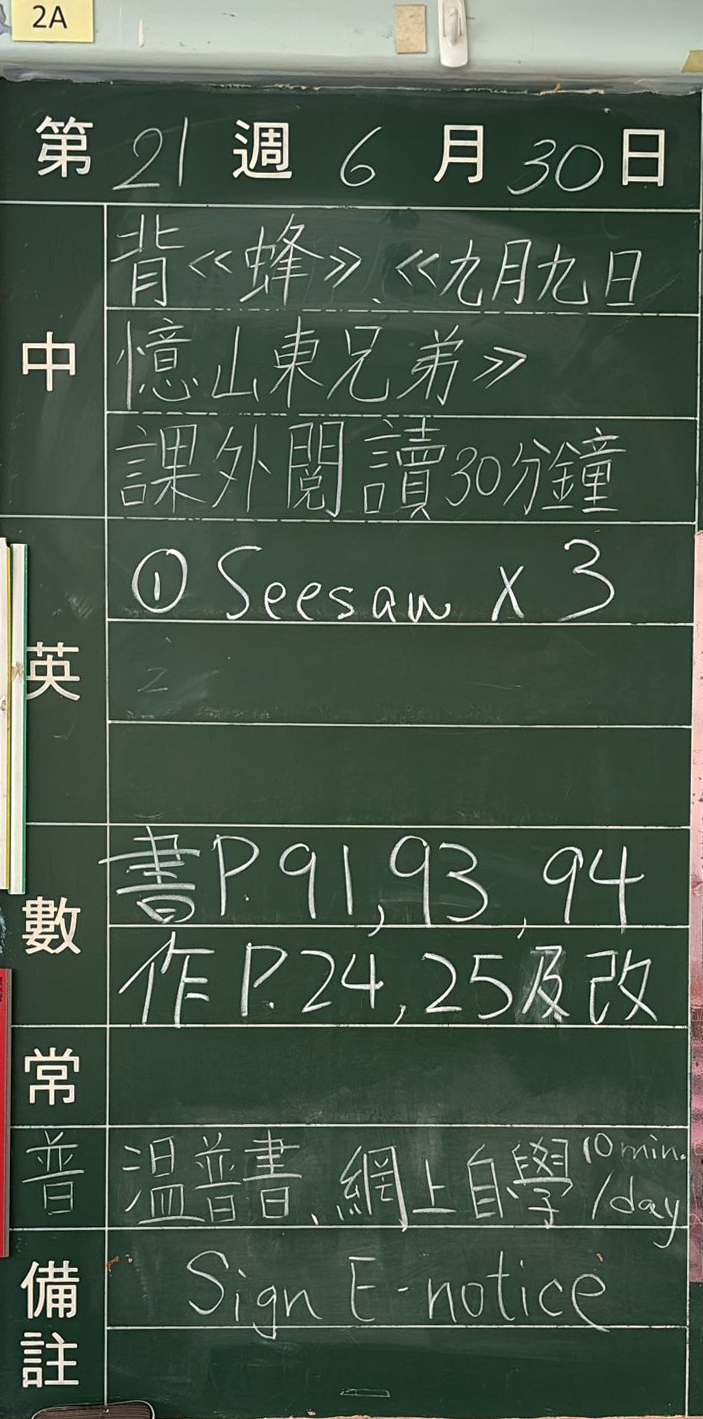 2A
第 21 週 6 月 30 日
中
背<<蜂>>、<<九月九日
憶山東兄弟>>
課外閱讀30分鐘
英
① Seesaw x 3
數
書P.91,93,94
作P.24,25及改
常
普
溫普書、網上自學 10 min./day
備註
Sign E-notice